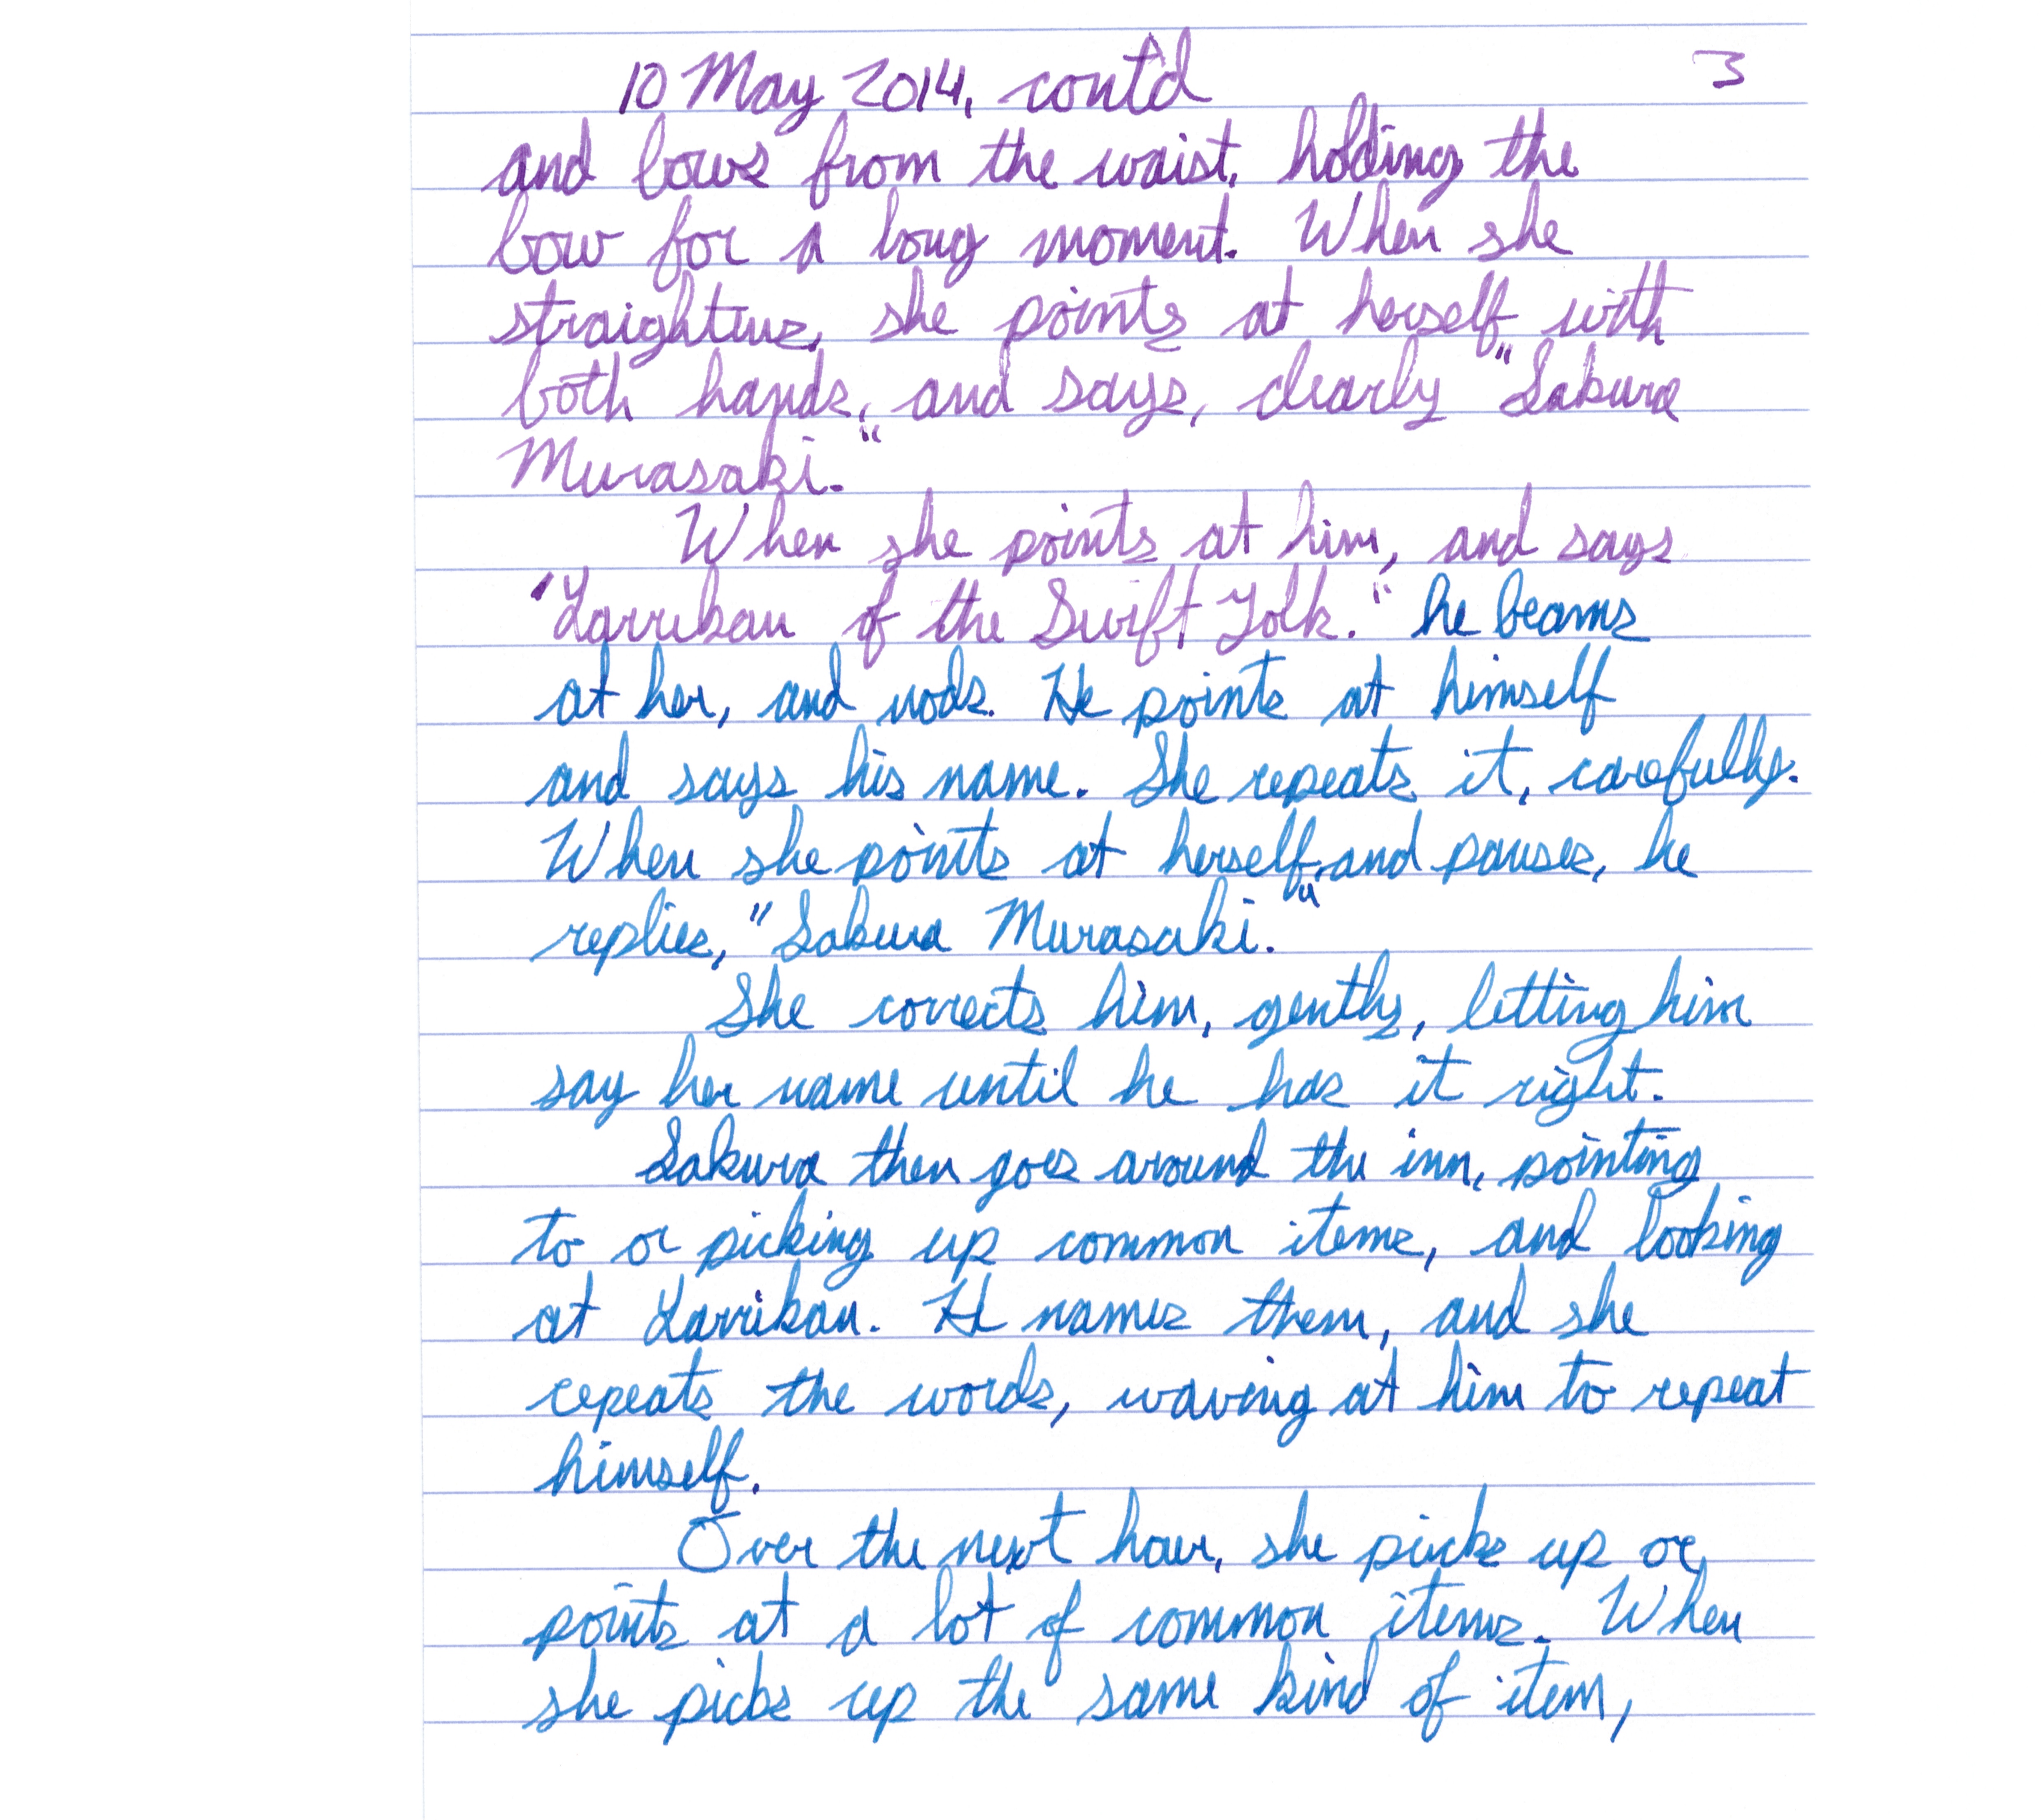 10 May 2014, cont'd 3
and bows from the waist, holding the
bow for a long moment. When she
straightens, she points at herself with
both hands, and says, clearly "Sakura
Murasaki."
When she points at him, and says
"Larrikan of the Swift Folk." he beams
at her, and nods. He points at himself
and says his name. She repeats it, carefully.
When she points at herself, and pauses, he
replies, "Sakura Murasaki."
She corrects him, gently, letting him
say her name until he has it right.
Sakura then goes around the inn, pointing
to or picking up common items, and looking
at Larrikan. He names them, and she
repeats the words, waving at him to repeat
himself.
Over the next hour, she picks up or
points at a lot of common items. When
she picks up the same kind of item,